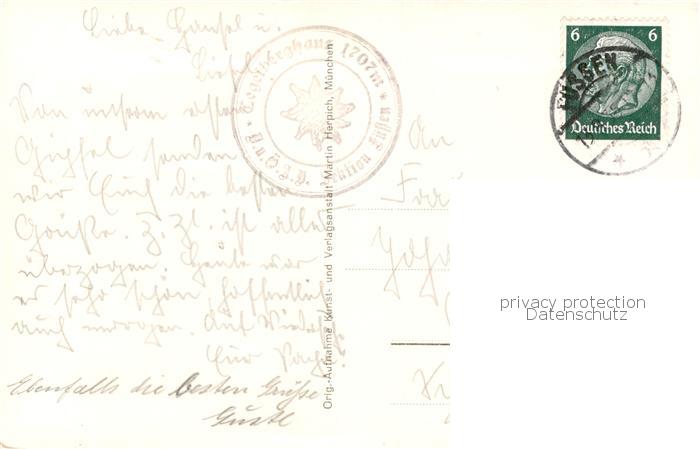 Liebe Hansel u.
Liesel
Von unserem ersten
Gipfel senden
wir Euch die besten
Grüße. Z. Zt. ist alles
überzogen. Heute war
es sehr schön, hoffentlich
auch morgen. Auf Wiederseh.
Eur
Ebenfalls die besten Grüße
Gustl
Tegelberghaus 1707m
D.u.Ö.A.V. Sektion Füssen
Orig.-Aufnahme Kunst- und Verlagsanstalt Martin Herpich, München
An
6 6
FÜSSEN
Deutsches Reich
privacy protection
Datenschutz